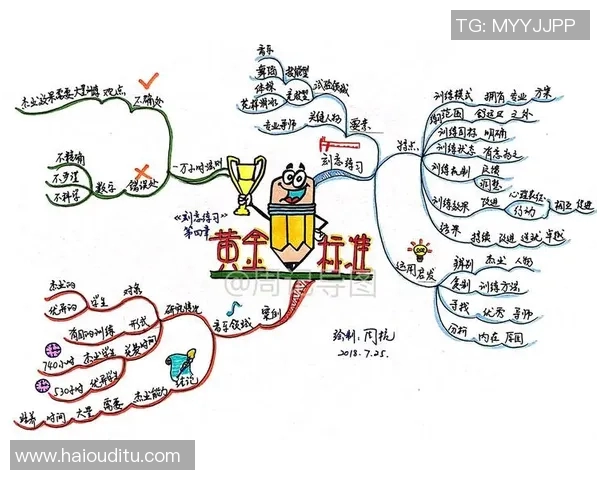 TG: MYYJJPP
《刻意练习》
第四章
黄金标准
@周门导图
绘制:周抗
2018.7.25.
一万小时法则
正确处
观点
杰出效果需要大量训练
错误处
数字
不精确
不步理
不科学
刻意练习
要素
试验领域
技能型
音乐
舞蹈
体操
花样滑冰
关键人物
专业导师
特点
训练模式 拥有专业方案
训练范围 舒适区之外
训练目标 明确
训练状态 有意为之
训练机制 反馈
调整
训练效果 改进 心理表征
行动
相互促进
结果 持续 改进
运用启发
辨别 杰出人物
复制 训练方法
寻找 优秀 导师
分析 内在原因
案例
音乐领域
研究情况
对象
学生
杰出的
优秀的
形式
有目的训练
花费时间
杰出学生
740小时
优秀学生
530小时
结论
杰出能力 需要 大量 时间 培养
www.haiouditu.com